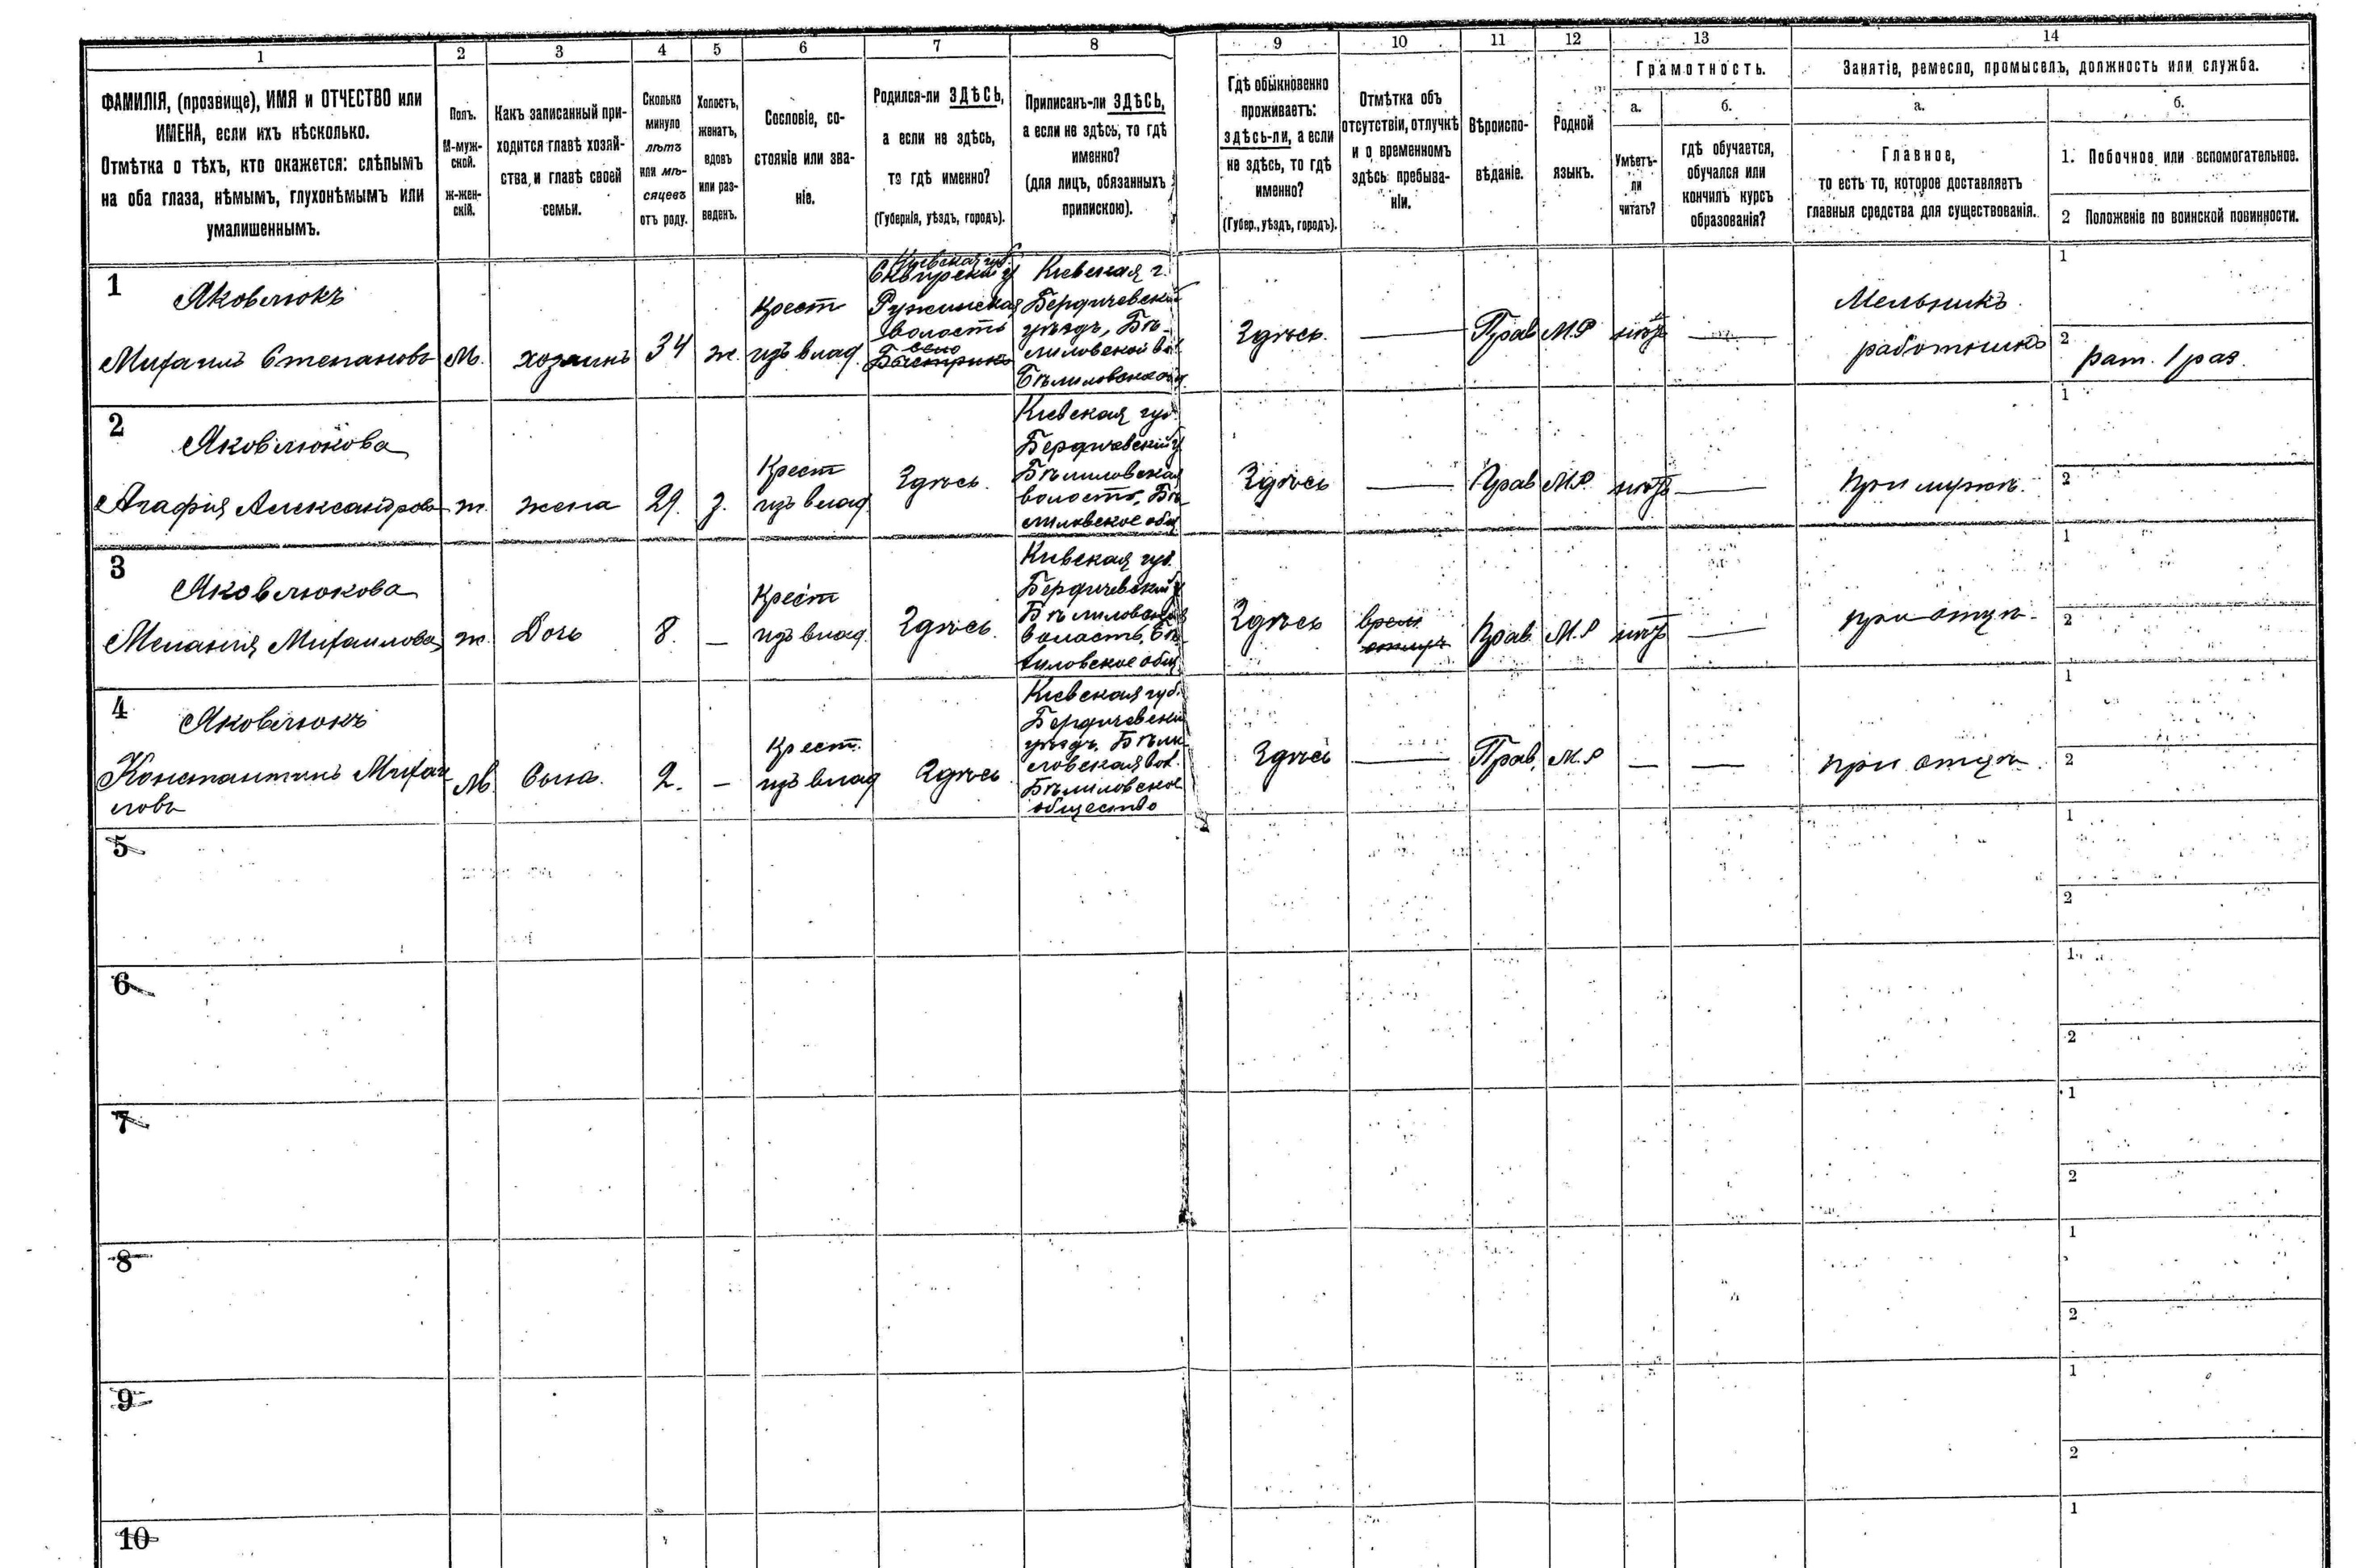 1 2 3 4 5 6 7 8 9 10 11 12 13 14
ФАМИЛІЯ, (прозвище), ИМЯ и ОТЧЕСТВО или
ИМЕНА, если ихъ нѣсколько.
Отмѣтка о тѣхъ, кто окажется: слѣпымъ
на оба глаза, нѣмымъ, глухонѣмымъ или
умалишеннымъ.
Полъ.
М-муж-
ской.
ж-жен-
скій.
Какъ записанный при-
ходится главѣ хозяй-
ства, и главѣ своей
семьи.
Сколько
минуло
лѣтъ
или мѣ-
сяцевъ
отъ роду.
Холостъ,
женатъ,
вдовъ
или раз-
веденъ.
Сословіе, со-
стояніе или зва-
ніе.
Родился-ли ЗДѢСЬ,
а если не здѣсь,
то гдѣ именно?
(Губернія, уѣздъ, городъ).
Приписанъ-ли ЗДѢСЬ,
а если не здѣсь, то гдѣ
именно?
(для лицъ, обязанныхъ
припискою).
Гдѣ обыкновенно
проживаетъ:
здѣсь-ли, а если
не здѣсь, то гдѣ
именно?
(Губер., уѣздъ, городъ).
Отмѣтка объ
отсутствіи, отлучкѣ
и о временномъ
здѣсь пребыва-
ніи.
Вѣроиспо-
вѣданіе.
Родной
языкъ.
Грамотность.
а.
Умѣетъ-
ли
читать?
б.
гдѣ обучается,
обучался или
кончилъ курсъ
образованія?
Занятіе, ремесло, промыселъ, должность или служба.
а.
Главное,
то есть то, которое доставляетъ
главныя средства для существованія.
б.
1. Побочное или вспомогательное.
2 Положеніе по воинской повинности.
1
Яковлюкъ
Михаилъ Степановъ
М.
хозяинъ
34
ж.
Крест
изъ влад.
Кіевская губ.
Сквирскій у
Ружинская
волость
село
Кіевская г.
Бердичевскій
уѣздъ, Бѣ-
лиловской вол
Бѣлиловское
Здѣсь.
Прав
М.Р
нѣтъ
Мельникъ
работникъ
1
2
рат. 1 раз.
2
Яковлюкова
Агафія Александрова
ж.
жена
29.
з.
Крест
изъ влад
Здѣсь.
Кіевская губ.
Бердичевскій у
Бѣлиловская
волость, Бѣ-
лиловское общ
Здѣсь
Прав
М.Р.
нѣтъ
при мужѣ.
1
2
3
Яковлюкова
Меланія Михаилова
ж.
Дочь
8.
Крест
изъ влад.
Здѣсь.
Кіевская губ.
Бердичевскій у
Бѣлиловская
волость, Бѣ-
лиловское общ.
Здѣсь
врем.
Прав.
М.Р
нѣтъ
при отцѣ.
1
2
4
Яковлюкъ
Константинъ Михаи
ловъ
М.
Сынъ.
2.
Крест.
изъ влад
Здѣсь
Кіевская губ.
Бердичевскій
уѣздъ. Бѣли-
ловская вол.
Бѣлиловское
общество
Здѣсь
Прав.
М.Р
при отцѣ.
1
2
5
1
2
6
1
2
7
1
2
8
1
2
9
1
2
10
1